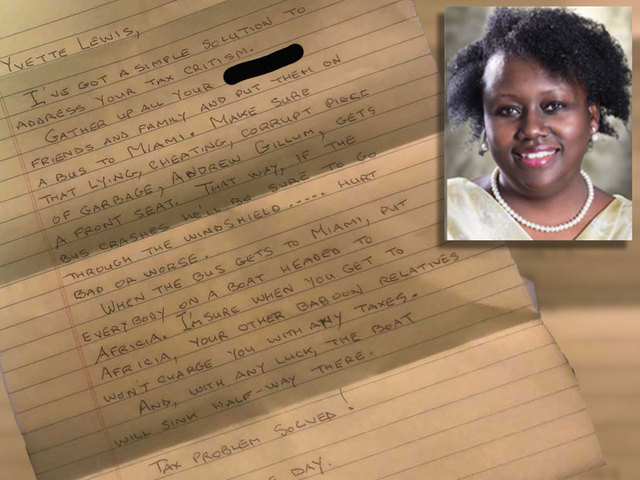 YVETTE LEWIS,
I'VE GOT A SIMPLE SOLUTION TO
ADDRESS YOUR TAX CRITISM.
GATHER UP ALL YOUR
FRIENDS AND FAMILY AND PUT THEM ON
A BUS TO MIAMI. MAKE SURE
THAT LYING, CHEATING, CORRUPT PIECE
OF GARBAGE, ANDREW GILLUM, GETS
A FRONT SEAT. THAT WAY, IF THE
BUS CRASHES HE'LL BE SURE TO GO
THROUGH THE WINDSHIELD..... HURT
BAD OR WORSE.
WHEN THE BUS GETS TO MIAMI, PUT
EVERYBODY ON A BOAT HEADED TO
AFRICIA. I'M SURE WHEN YOU GET TO
AFRICIA, YOUR OTHER BABOON RELATIVES
WON'T CHARGE YOU WITH ANY TAXES.
AND, WITH ANY LUCK, THE BOAT
WILL SINK HALF-WAY THERE.
TAX PROBLEM SOLVED!
DAY.